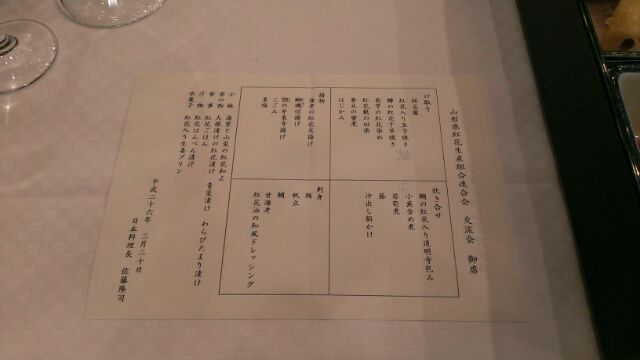 山形県紅花生産組合連合会 交流会 御席
口取り
桜豆腐
紅花入り玉子焼き
鰆の紅花千草焼き
長芋の紅花染め
紅花麩の田楽
蚕豆の蜜煮
はじかみ
炊き合せ
鯛の紅花入り道明寺包み
小蕪含め煮
若筍煮
蕗
汁出し餡かけ
揚物
海老の紅花衣揚げ
こごみ
東寺揚げ
刺身
鮪
帆立
鯛
甘海老
紅花油の和風ドレッシング
小鉢 海草と山菜の紅花和え
香の物 大根漬けの紅花漬け 青菜漬け わらびたまり漬け
食事 紅花ごはん
汁物 紅花はんぺん清汁
水菓子 紅花入り生姜プリン
平成二十六年 三月二十日
日本料理長 佐藤隆司